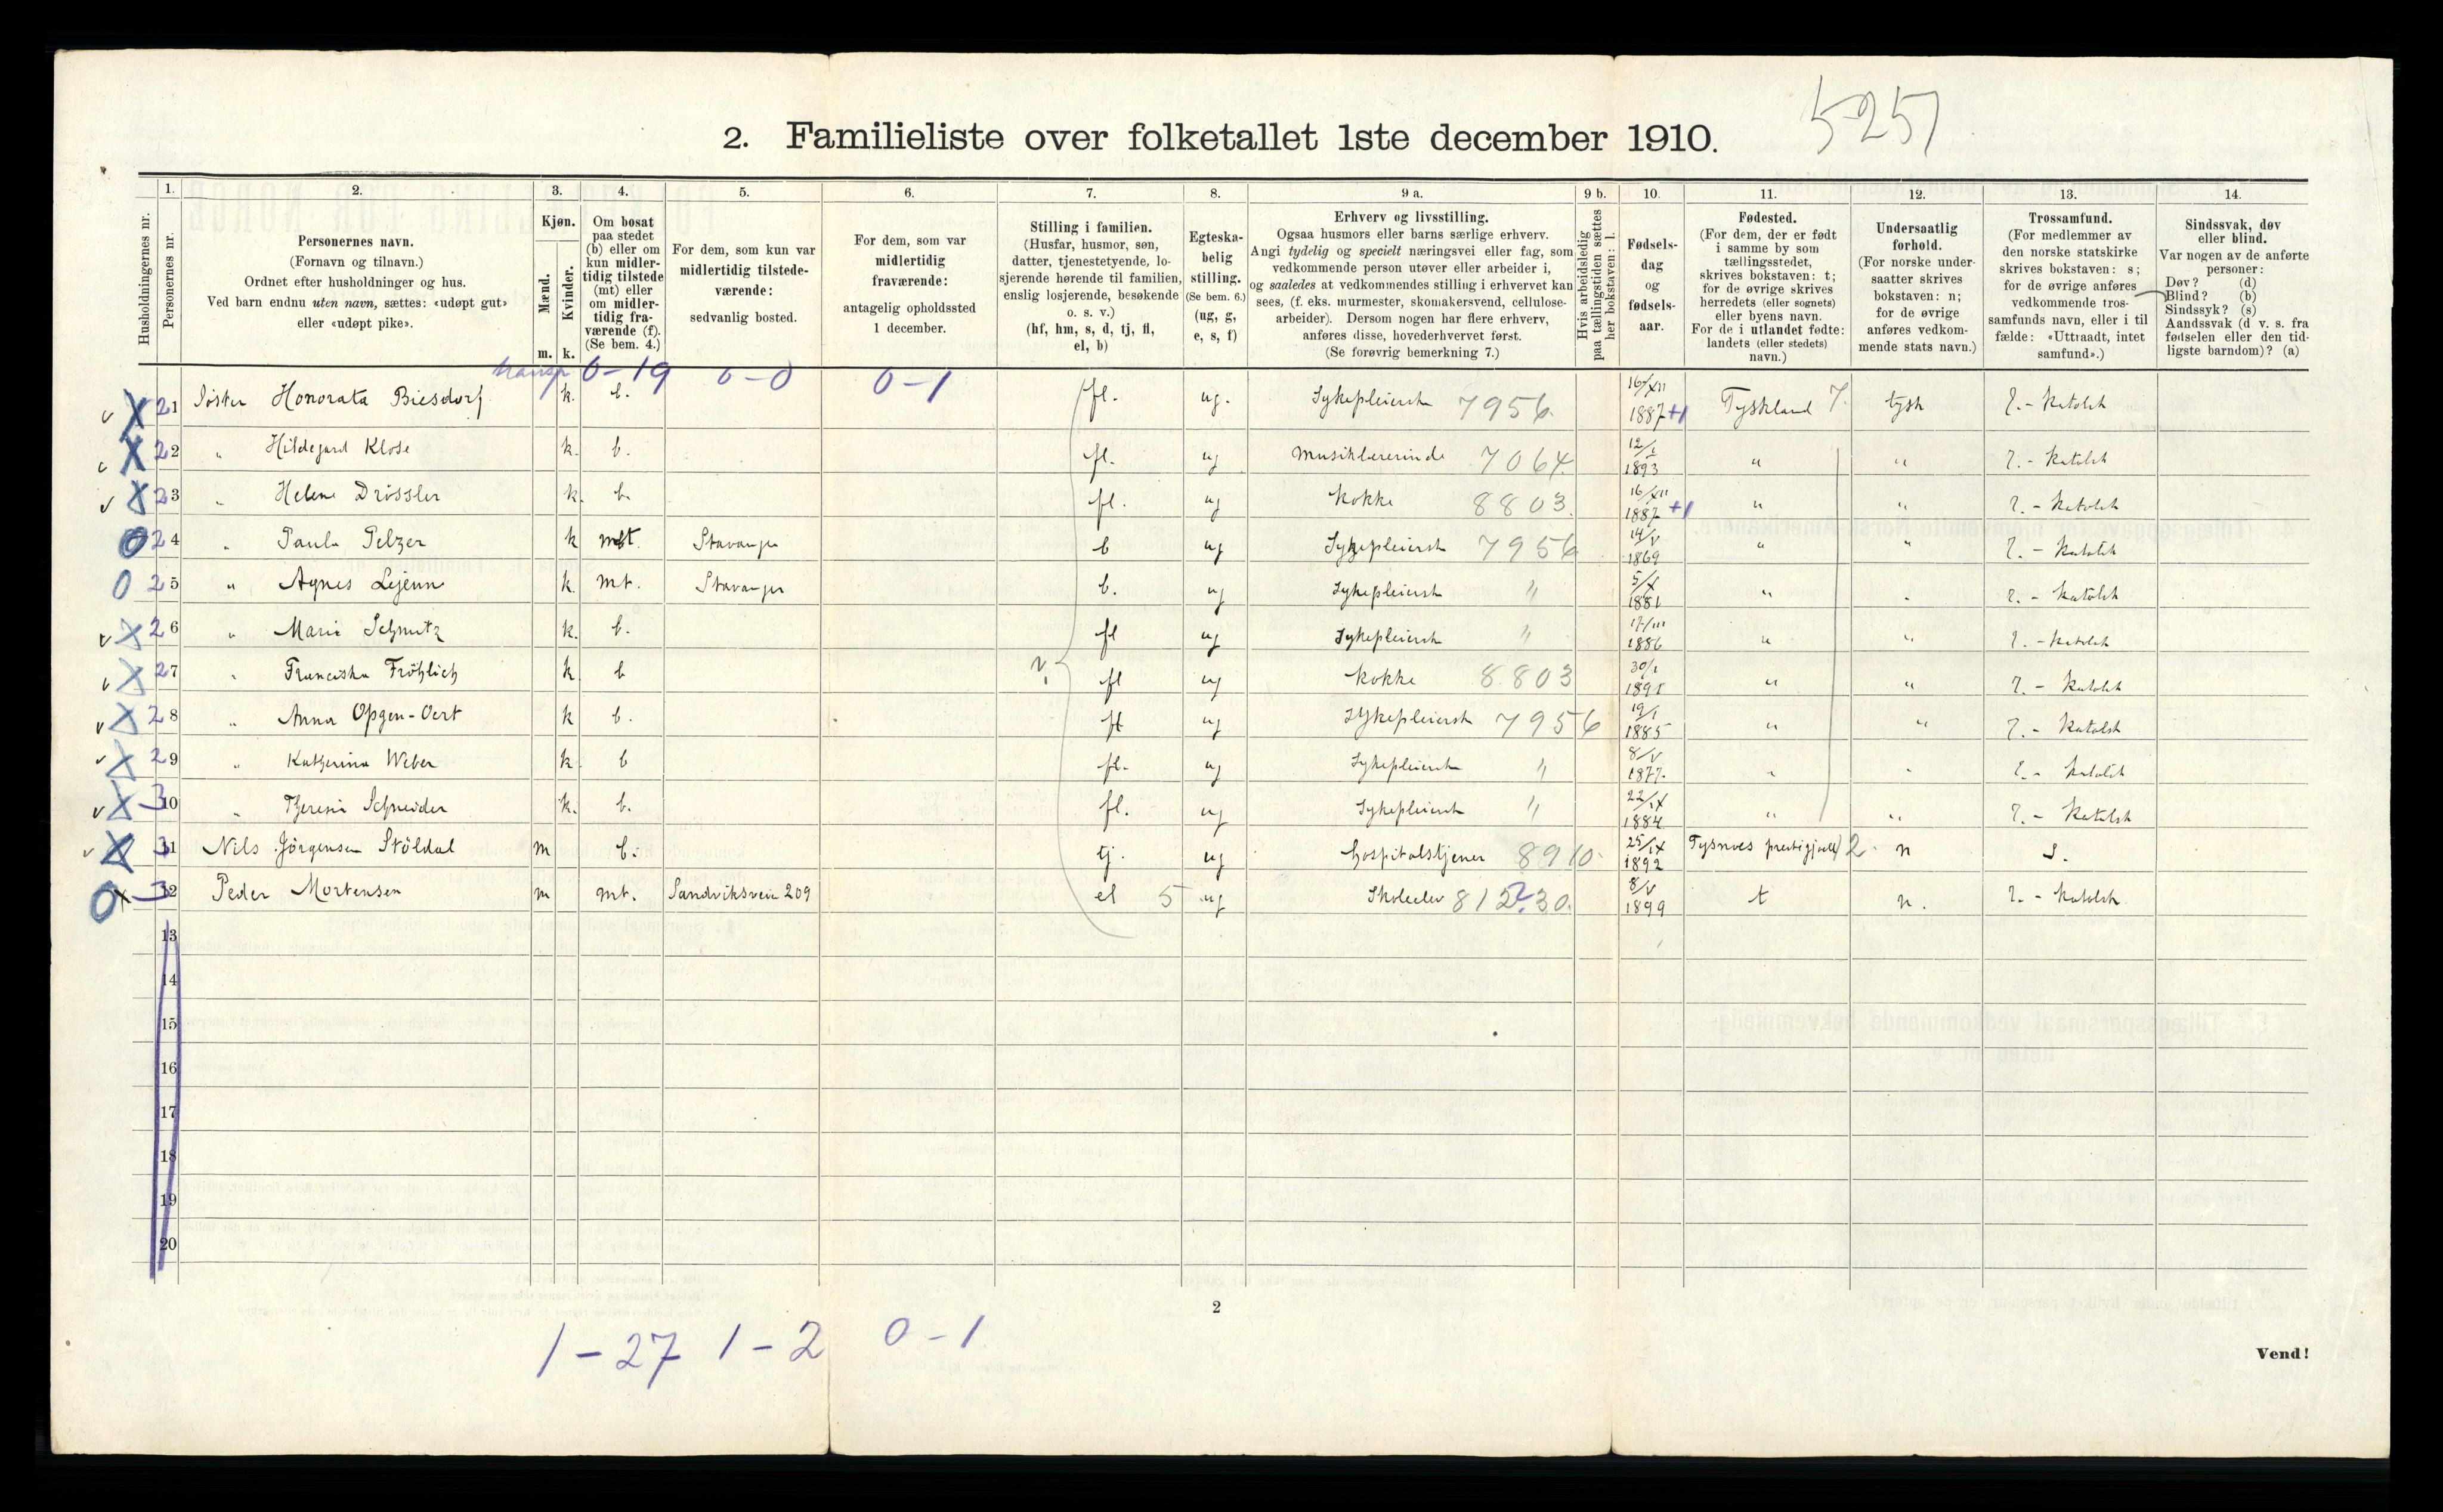 5251
2. Familieliste over folketallet 1ste december 1910.
Husholdningernes nr.
1. Personernes nr.
2. Personernes navn.
(Fornavn og tilnavn.)
Ordnet efter husholdninger og hus.
Ved barn endnu uten navn, sættes: «udøpt gut»
eller «udøpt pike».
3. Kjøn.
Mænd. m.
Kvinder. k.
4. Om bosat
paa stedet
(b) eller om
kun midler-
tidig tilstede
(mt) eller
om midler-
tidig fra-
værende (f).
(Se bem. 4.)
5. For dem, som kun var
midlertidig tilstede-
værende:
sedvanlig bosted.
6. For dem, som var
midlertidig
fraværende:
antagelig opholdssted
1 december.
7. Stilling i familien.
(Husfar, husmor, søn,
datter, tjenestetyende, lo-
sjerende hørende til familien,
enslig losjerende, besøkende
o. s. v.)
(hf, hm, s, d, tj, fl,
el, b)
8. Egteska-
belig
stilling.
(Se bem. 6.)
(ug, g,
e, s, f)
9 a. Erhverv og livsstilling.
Ogsaa husmors eller barns særlige erhverv.
Angi tydelig og specielt næringsvei eller fag, som
vedkommende person utøver eller arbeider i,
og saaledes at vedkommendes stilling i erhvervet kan
sees, (f. eks. murmester, skomakersvend, cellulose-
arbeider). Dersom nogen har flere erhverv,
anføres disse, hovederhvervet først.
(Se forøvrig bemerkning 7.)
9 b. Hvis arbeidsledig
paa tællingstiden sættes
her bokstaven: l.
10. Fødsels-
dag
og
fødsels-
aar.
11. Fødested.
(For dem, der er født
i samme by som
tællingsstedet,
skrives bokstaven: t;
for de øvrige skrives
herredets (eller sognets)
eller byens navn.
For de i utlandet fødte:
landets (eller stedets)
navn.)
12. Undersaatlig
forhold.
(For norske under-
saatter skrives
bokstaven: n;
for de øvrige
anføres vedkom-
mende stats navn.)
13. Trossamfund.
(For medlemmer av
den norske statskirke
skrives bokstaven: s;
for de øvrige anføres
vedkommende tros-
samfunds navn, eller i til
fælde: «Uttraadt, intet
samfund».)
14. Sindssvak, døv
eller blind.
Var nogen av de anførte
personer:
Døv? (d)
Blind? (b)
Sindssyk? (s)
Aandssvak (d. v. s. fra
fødselen eller den tid-
ligste barndom)? (a)
transp. 0-19 0-0 0-1
21 Söster Honorata Biesdorf k. b. fl. ug. Sykepleiersk 7956 16/XII 1887 +1 Tyskland 7. tysk R.-Katolsk
22 " Hildegard Klose k. b. fl. ug Musiklærerinde 7064 12/I 1893 " " R.-Katolsk
23 " Helene Drössler k. b. fl. ug Kokke 8803. 16/XII 1887 +1 " " R.-Katolsk
24 " Paula Pelzer k mt. Stavanger b ug Sykepleiersk 7956 14/V 1869 " " R.-Katolsk
25 " Agnes Lejeune k. mt. Stavanger b. ug Sykepleiersk " 5/X 1881 " " R.-Katolsk
26 " Marie Schmitz k. b. fl ug Sykepleiersk " 17/III 1886 " " R.-Katolsk
27 " Franciska Fröhlich k b fl ug Kokke 8803 30/I 1891 " " R.-Katolsk
28 " Anna Opgen-Oert k b. fl ug Sykepleiersk 7956 19/I 1885 " " R.-Katolsk
29 " Katherina Weber k b fl. ug Sykepleiersk " 8/V 1877. " " R.-Katolsk
30 " Theresia Schneider k. b. fl. ug Sykepleiersk " 22/IX 1884 " " R.-Katolsk
31 Nils Jörgensen Stöldal m b. tj. ug Hospitalstjener 8910. 25/IX 1892 Tysnæs prestegjæld 2. n S.
32 Peder Mortensen m mt. Sandviksveien 209 el 5 ug Skoleelev 8 1 2.30. 8/V 1899 t n. R.-Katolsk
13
14
15
16
17
18
19
20
2
1-27 1-2 0-1
Vend!